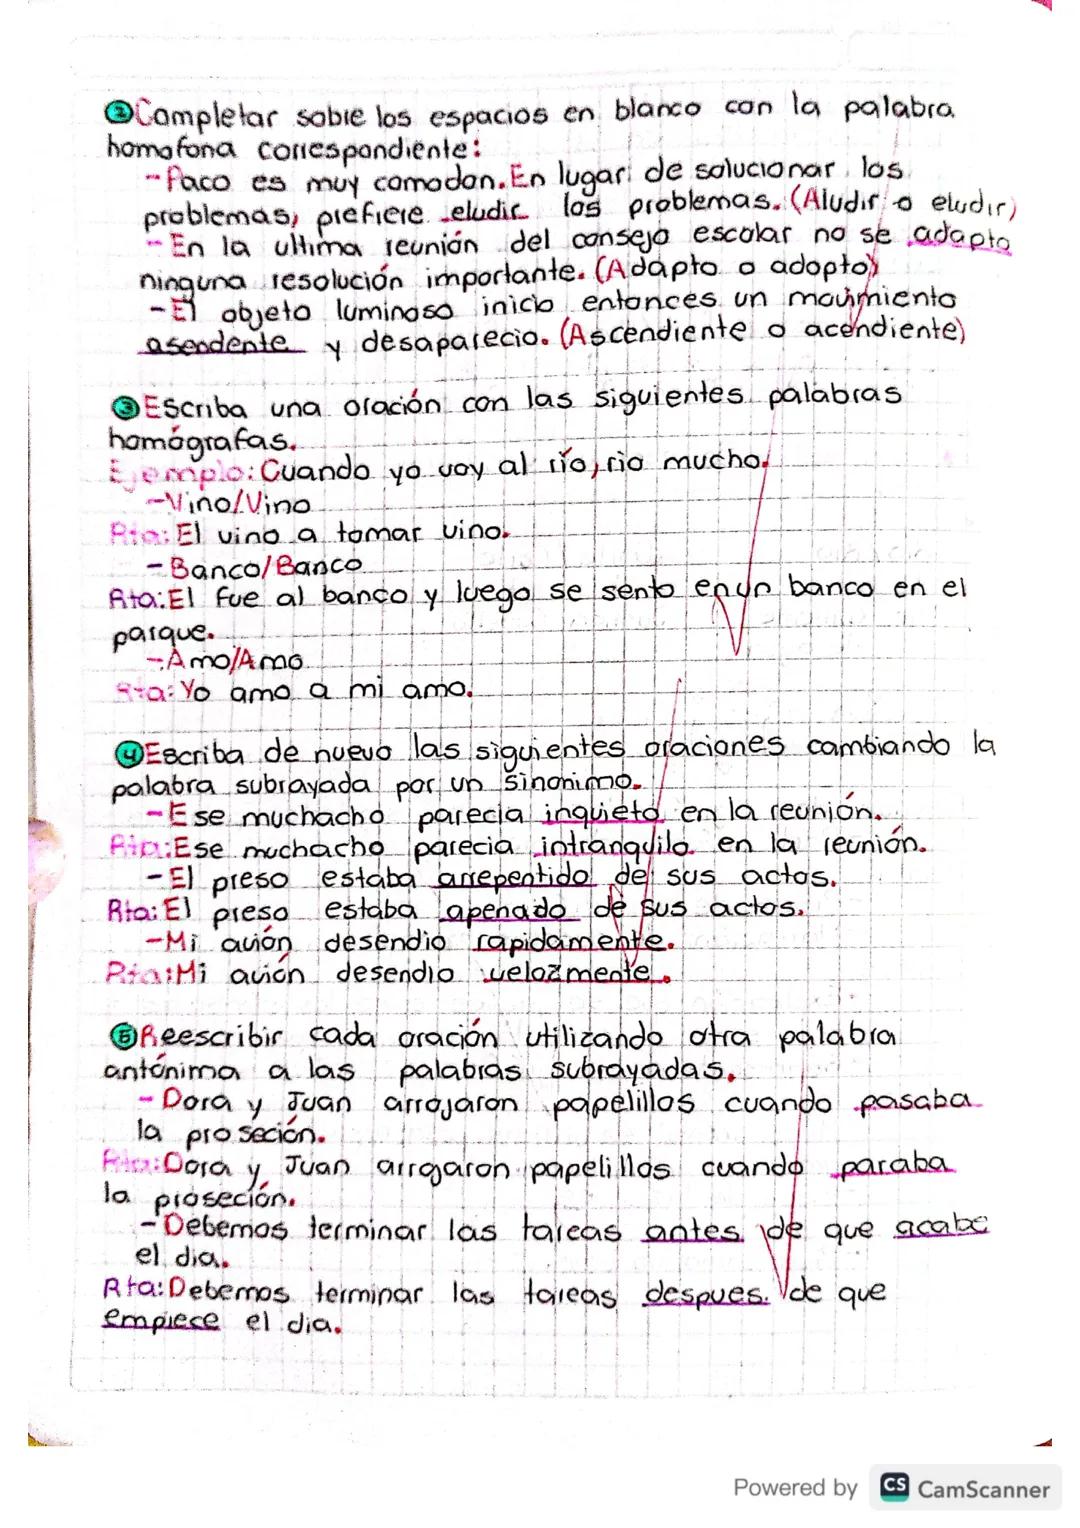 ②Completar sobre los espacios en blanco con la palabra
homofona correspondiente:
-Paco es muy comodon. En lugar de solucionar los
problemas, prefiere eludir los problemas. (Aludir o eludir)
-En la ultima reunión del consejo escolar no se adapto
ninguna resolución importante. (Adapto o adopto)
-El objeto luminoso inicio entonces un movimiento
asendente y desaparecio. (Ascendiente o acendiente)
③Escriba una oración con las siguientes palabras
homógrafas.
Ejemplo: Cuando yo voy al río, rio mucho.
-Vino/Vino
Rta: El vino a tomar vino.
-Banco/Banco
Rta: El fue al banco y luego se sento en un banco en el
parque.
-Amo/Amo
Rta: Yo amo a mi amo.
④Escriba de nuevo las siguientes oraciones cambiando la
palabra subrayada por un sinonimo.
-Ese muchacho parecia inquieto en la reunión.
Rta: Ese muchacho parecia intranquilo en la reunión.
-El preso estaba arrepentido de sus actos.
Rta: El preso estaba apenado de sus actos.
-Mi avión desendio rapidamente.
Rta: Mi avión desendio velozmente.
⑤Reescribir cada oración utilizando otra palabra
antónima a las palabras subrayadas.
-Dora y Juan arrojaron papelillos cuando pasaba
la proseción.
Rta: Dora y Juan arrojaron papelillos cuando paraba
la proseción.
-Debemos terminar las tareas antes de que acabe
el dia.
Rta: Debemos terminar las tareas despues de que
empiece el dia.
Powered by CS CamScanner